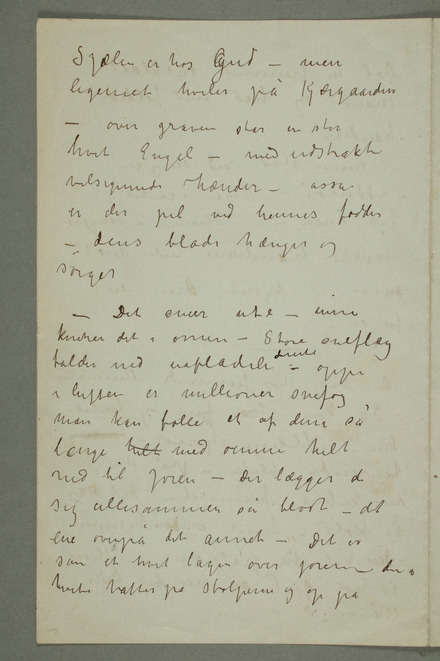 Sjælen er hos Gud – men
legemet hviler på Kjærgaarden
– over graven står en stor
hvit Engel – med udstrakte
velsignende hænder – også
er der pil ved hennes fødder
– dens blade hænger og
sørger
– Det sneer ute – inne
knitrer det i ovnen – Store sneflag
falder ned uafladeligt – oppe
i luften er millioner snefog
man kan følge et af dem så
længe helt med øinene helt
ned til joren – Der lægger de
sig allesammen så blødt – det
ene ovenpå det annet – Det er
som et hvit lagen over joren – den
hvite hatter på stolperne og op på